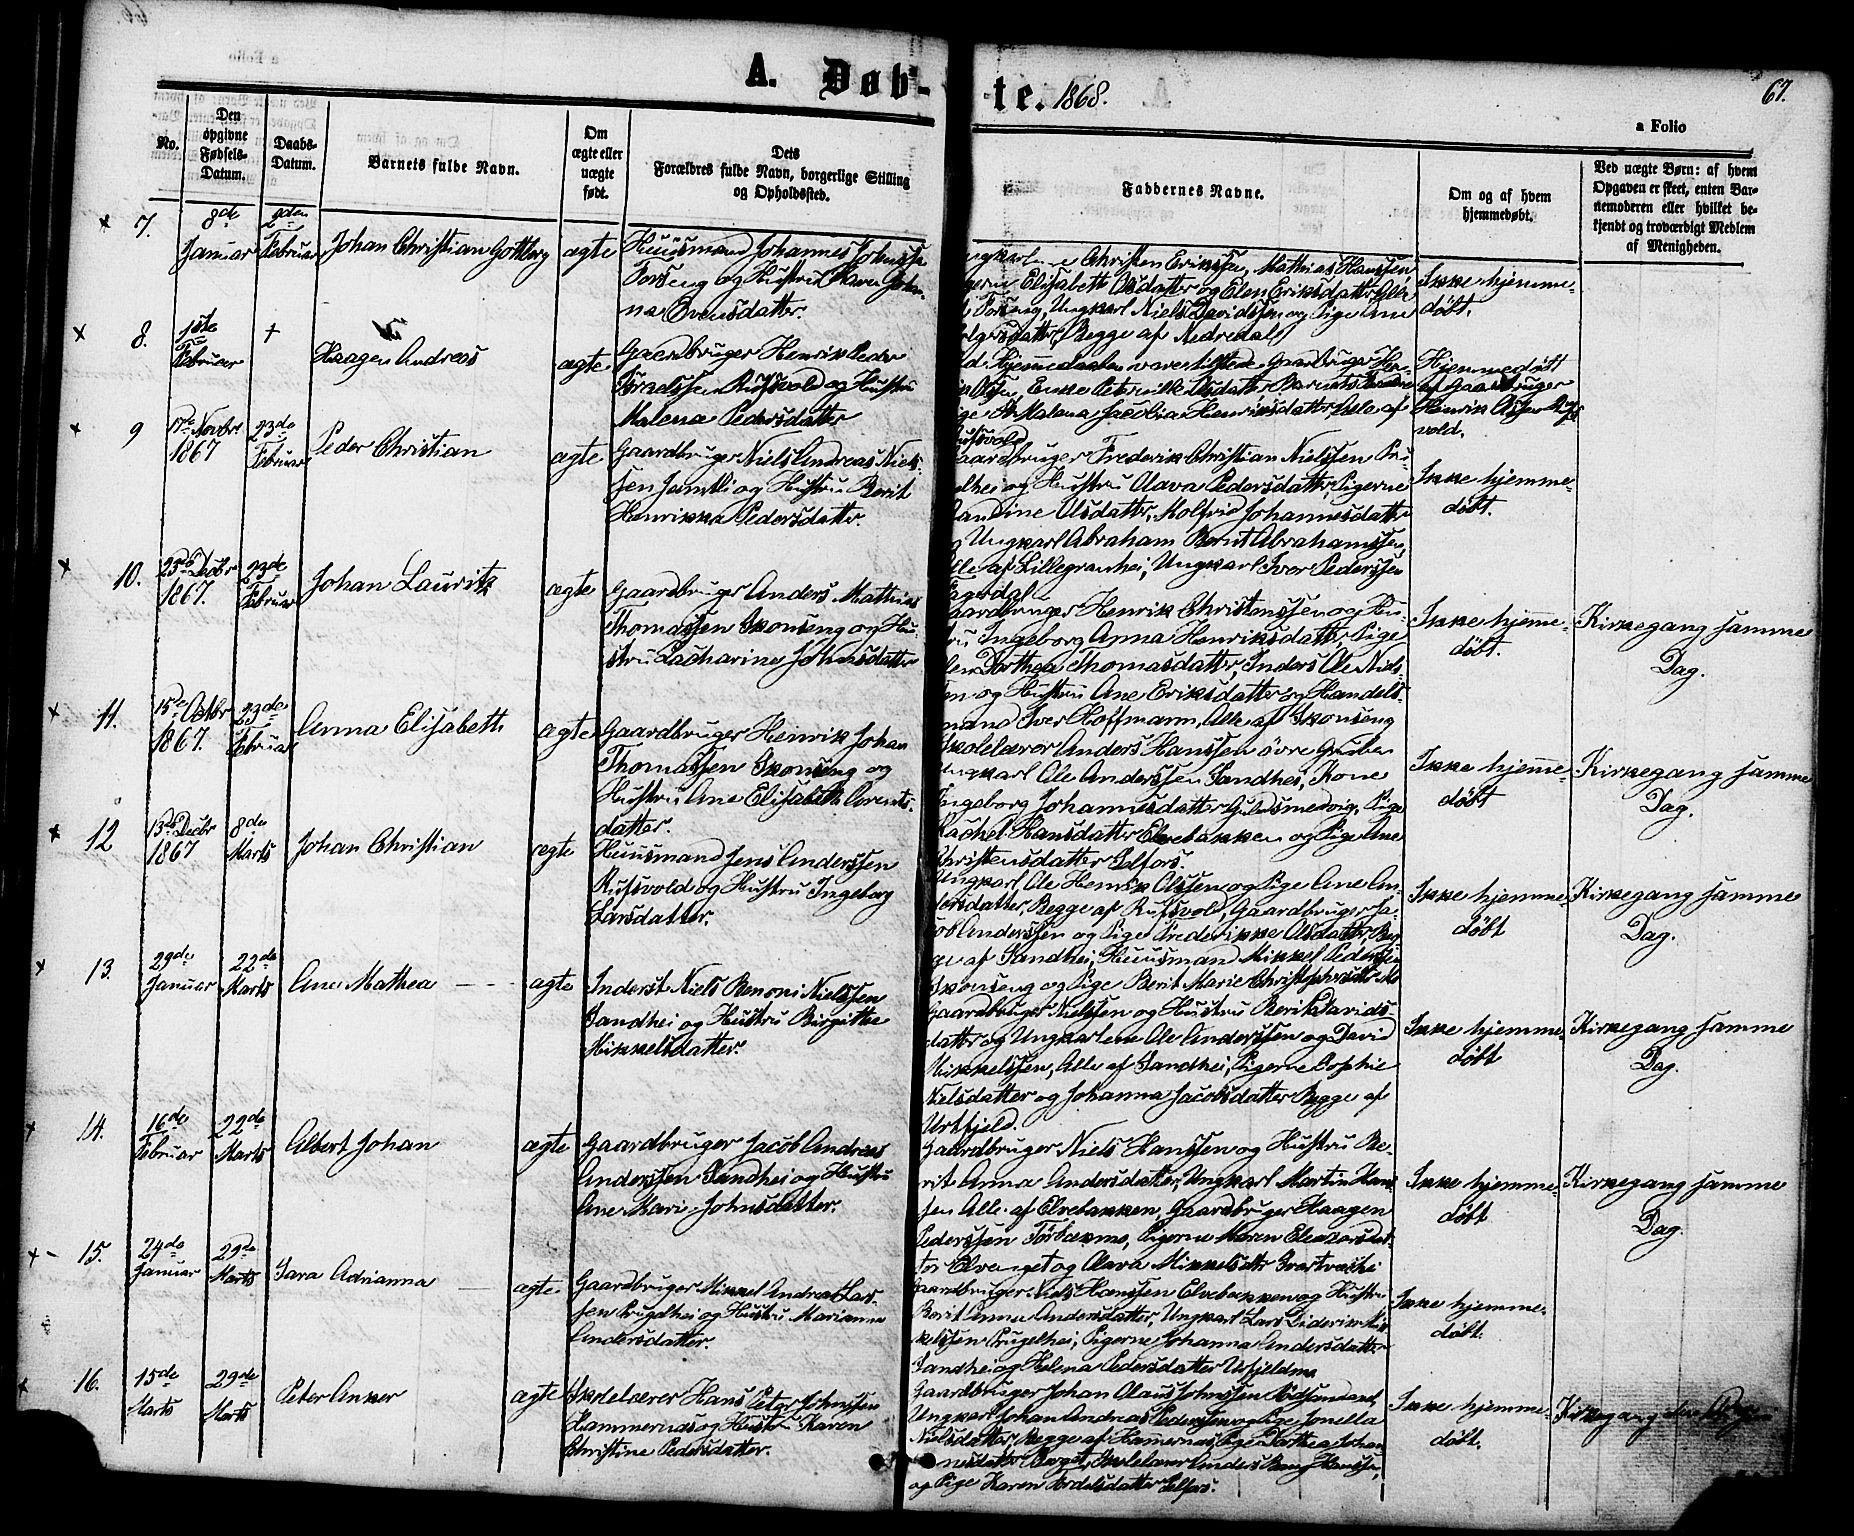 A. Døb-te. 1868.
67.
a Folio
No.
Den opgivne Fødsels-Datum.
Daabs-Datum.
Barnets fulde Navn.
Om ægte eller uægte født.
Dets Forældres fulde Navn, borgerlige Stilling og Opholdssted.
Faddernes Navne.
Om og af hvem hjemmedøbt.
Ved uægte Børn: af hvem Opgaven er skeet, enten Barnemoderen eller hvilket bekjendt og troværdigt Medlem af Menigheden.
7.
8de Januar
2den Februar
Johan Christian Gottberg
ægte
Huusmand Johannes Johnsen
Forseng og Hustru Maren Johan-
na Evensdatter.
Christen Erikssen, Mathias Hanssen,
Elisabeth Olsdatter og Elen Eriksdatter Alle
Forseng, Ungkarl Niels Davidssen og Pige Ane
Begge af Nedredal
Ikke hjemme-
døbt.
8.
1ste Februar
+
Haagen Andreas
ægte
Gaardbruger Henrik Peder
Rufsvold og Hustru
Malena Pedersdatter
Hjemmedaaben vare tilstede Gaardbruger Hen-
rik Olsen, Enke Peternille Olsdatter
Malena Jacobia Henriksdatter, Alle af
Rufsvold
Hjemmedøbt
af Gaardbruger
Henrik Olssen Rufs-
vold.
9
17de Novbr 1867
23de Februar
Peder Christian
ægte
Gaardbruger Niels Andreas Niels-
sen Jamtli og Hustru Berit
Henrikka Pedersdatter.
Gaardbruger Frederik Christian Nielssen Pru-
gelhei og Hustru Olava Pedersdatter, Pigerne
Olsdatter, Molfrid Johannesdatter
og Ungkarl Abraham Bernt Abrahamssen
Alle af Lillegranhei, Ungkarl Iver Pederssen
Fagerdal.
Ikke hjemme-
døbt.
10.
23de Decbr 1867.
23de Februar
Johan Lauritz
ægte
Gaardbruger Anders Mathias
Thomassen Skonseng og Hu-
stru Zacharine Johnsdatter
Gaardbruger Henrik Christenssen og Hu-
stru Ingeborg Anna Henriksdatter, Pige
Elen Dorthea Thomasdatter, Inderst Ole Niels-
sen og Hustru Ane Eriksdatter og Handels-
mand Iver Hoffmann, Alle af Skonseng
Ikke hjemme-
døbt.
Kirkegang samme
Dag.
11.
15de Octbr 1867.
23de Februar
Anna Elisabeth
ægte
Gaardbruger Henrik Johan
Thomassen Skonseng og
Hustru Ane Elisabeth Arents-
datter.
Skolelærer Anders Hanssen øvre Gruben
Ungkarl Ole Anderssen Sandhei, Kone
Ingeborg Johannesdatter Guldsmedvig, Pige
Rachel Hansdatter Elvebakken og Pige Ane
Christensdatter Selfors.
Ikke hjemme-
døbt
Kirkegang samme
Dag.
12
13de Decbr 1867
8de Marts
Johan Christian
ægte
Huusmand Jens Anderssen
Rufsvold og Hustru Ingeborg
Larsdatter.
Ungkarl Ole Henrik Olssen og Pige Ane An-
dersdatter, Begge af Rufsvold, Gaardbruger Ja-
cob Anderssen og Pige Frederikke Olsdatter, Beg-
ge af Sandhei, Huusmand Mikkel Pederssen
Skonseng og Pige Berit Marie
Ikke hjemme-
døbt
Kirkegang samme
Dag.
13.
29de Januar
22de Marts
Ane Mathea
ægte
Inderst Niels Benoni Nielssen
Sandhei og Hustru Birgitte
Mikkelsdatter.
Gaardbruger Nielssen og Hustru Berit Davids-
datter og Ungkarlene Ole Anderssen og David
Mikkelssen, Alle af Sandhei, Pigerne Sophie
Nielsdatter og Johanna Jacobsdatter Begge af
Urtfjeld.
Ikke hjemme-
døbt
Kirkegang samme
Dag.
14.
16de Februar
22de Marts
Albert Johan
ægte
Gaardbruger Jacob Andreas
Anderssen Sandhei og Hustru
Ane Marie Johnsdatter.
Gaardbruger Niels Hanssen og Hustru Be-
rit Anna Andersdatter, Ungkarl Martin Hans-
sen Alle af Elvebakken, Gaardbruger Haagen
Pederssen, Pigerne Maren Eleazarsdat-
ter og Olava Mikkelsdtr Svartvashei
Ikke hjemme-
døbt
Kirkegang samme
Dag.
15.
24de Januar
29de Marts
Sara Adrianna
ægte
Gaardbruger Mikkel Andreas Lars-
sen Prugelhei og Hustru Marianna
Andersdatter.
Gaardbruger Niels Hanssen Elvebakken og Hustru
Berit Anna Andersdatter, Ungkarl Lars Diderik Mik-
kelssen Prugelhei, Pigerne Johanna Andersdatter
Sandhei og Helena Pedersdatter Urfjeldmo
Ikke hjemme-
døbt.
16.
15de Marts
29de Marts
Peter Anker
ægte
Skolelærer Hans Peter Johnssen
Hammernes og Hustru Karen
Christine Pedersdatter.
Gaardbruger Johan Olaus Johnssen
Ungkarl Johan Andreas Pederssen og Pige Jonella
Nielsdatter, Begge af Hammernes, Pige Dorthea Johan-
nesdatter, Skolelærer Anders Hanssen,
og Pige Karen Selfors.
Ikke hjemme-
døbt.
Kirkegang